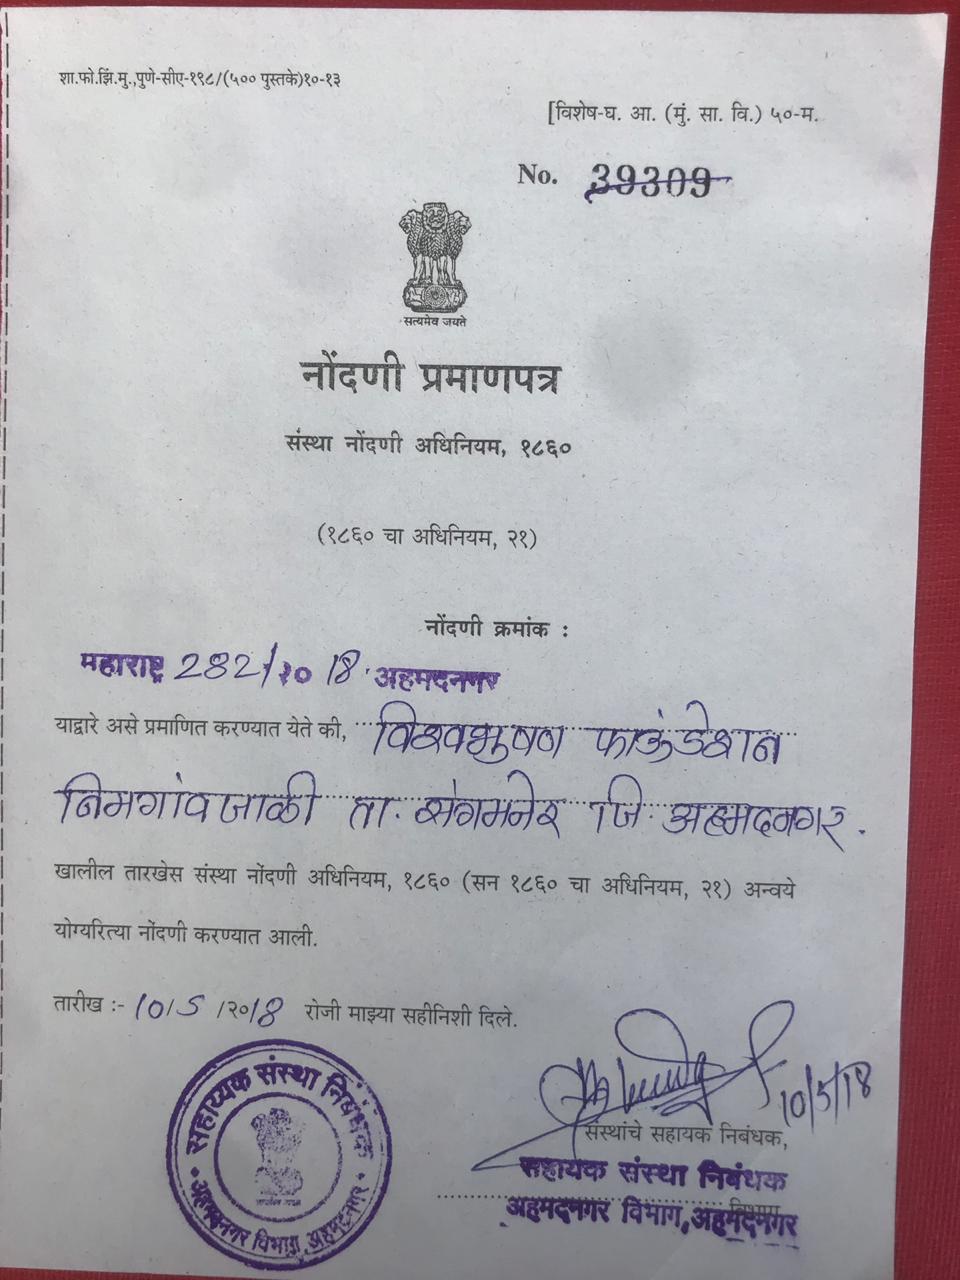 शा.फो.झिं.मु.,पुणे-सीए-१९८/(५०० पुस्तके)१०-१३
[विशेष-घ. आ. (मुं. सा. वि.) ५०-म.
No. 39309
सत्यमेव जयते
नोंदणी प्रमाणपत्र
संस्था नोंदणी अधिनियम, १८६०
(१८६० चा अधिनियम, २१)
नोंदणी क्रमांक :
महाराष्ट्र 282/२० 18 अहमदनगर
याद्वारे असे प्रमाणित करण्यात येते की, विश्वभुषण फाऊंडेशान
निमगांवजाळी ता. संगमनेर जि. अहमदनगर.
खालील तारखेस संस्था नोंदणी अधिनियम, १८६० (सन १८६० चा अधिनियम, २१) अन्वये
योग्यरित्या नोंदणी करण्यात आली.
तारीख :- 10/5 /२०18 रोजी माझ्या सहीनिशी दिले.
10/5/18
संस्थांचे सहायक निबंधक,
सहायक संस्था निबंधक
विभाग
अहमदनगर विभाग,अहमदनगर
सहाय्यक संस्था निबंधक
अहमदनगर विभाग, अहमदनगर